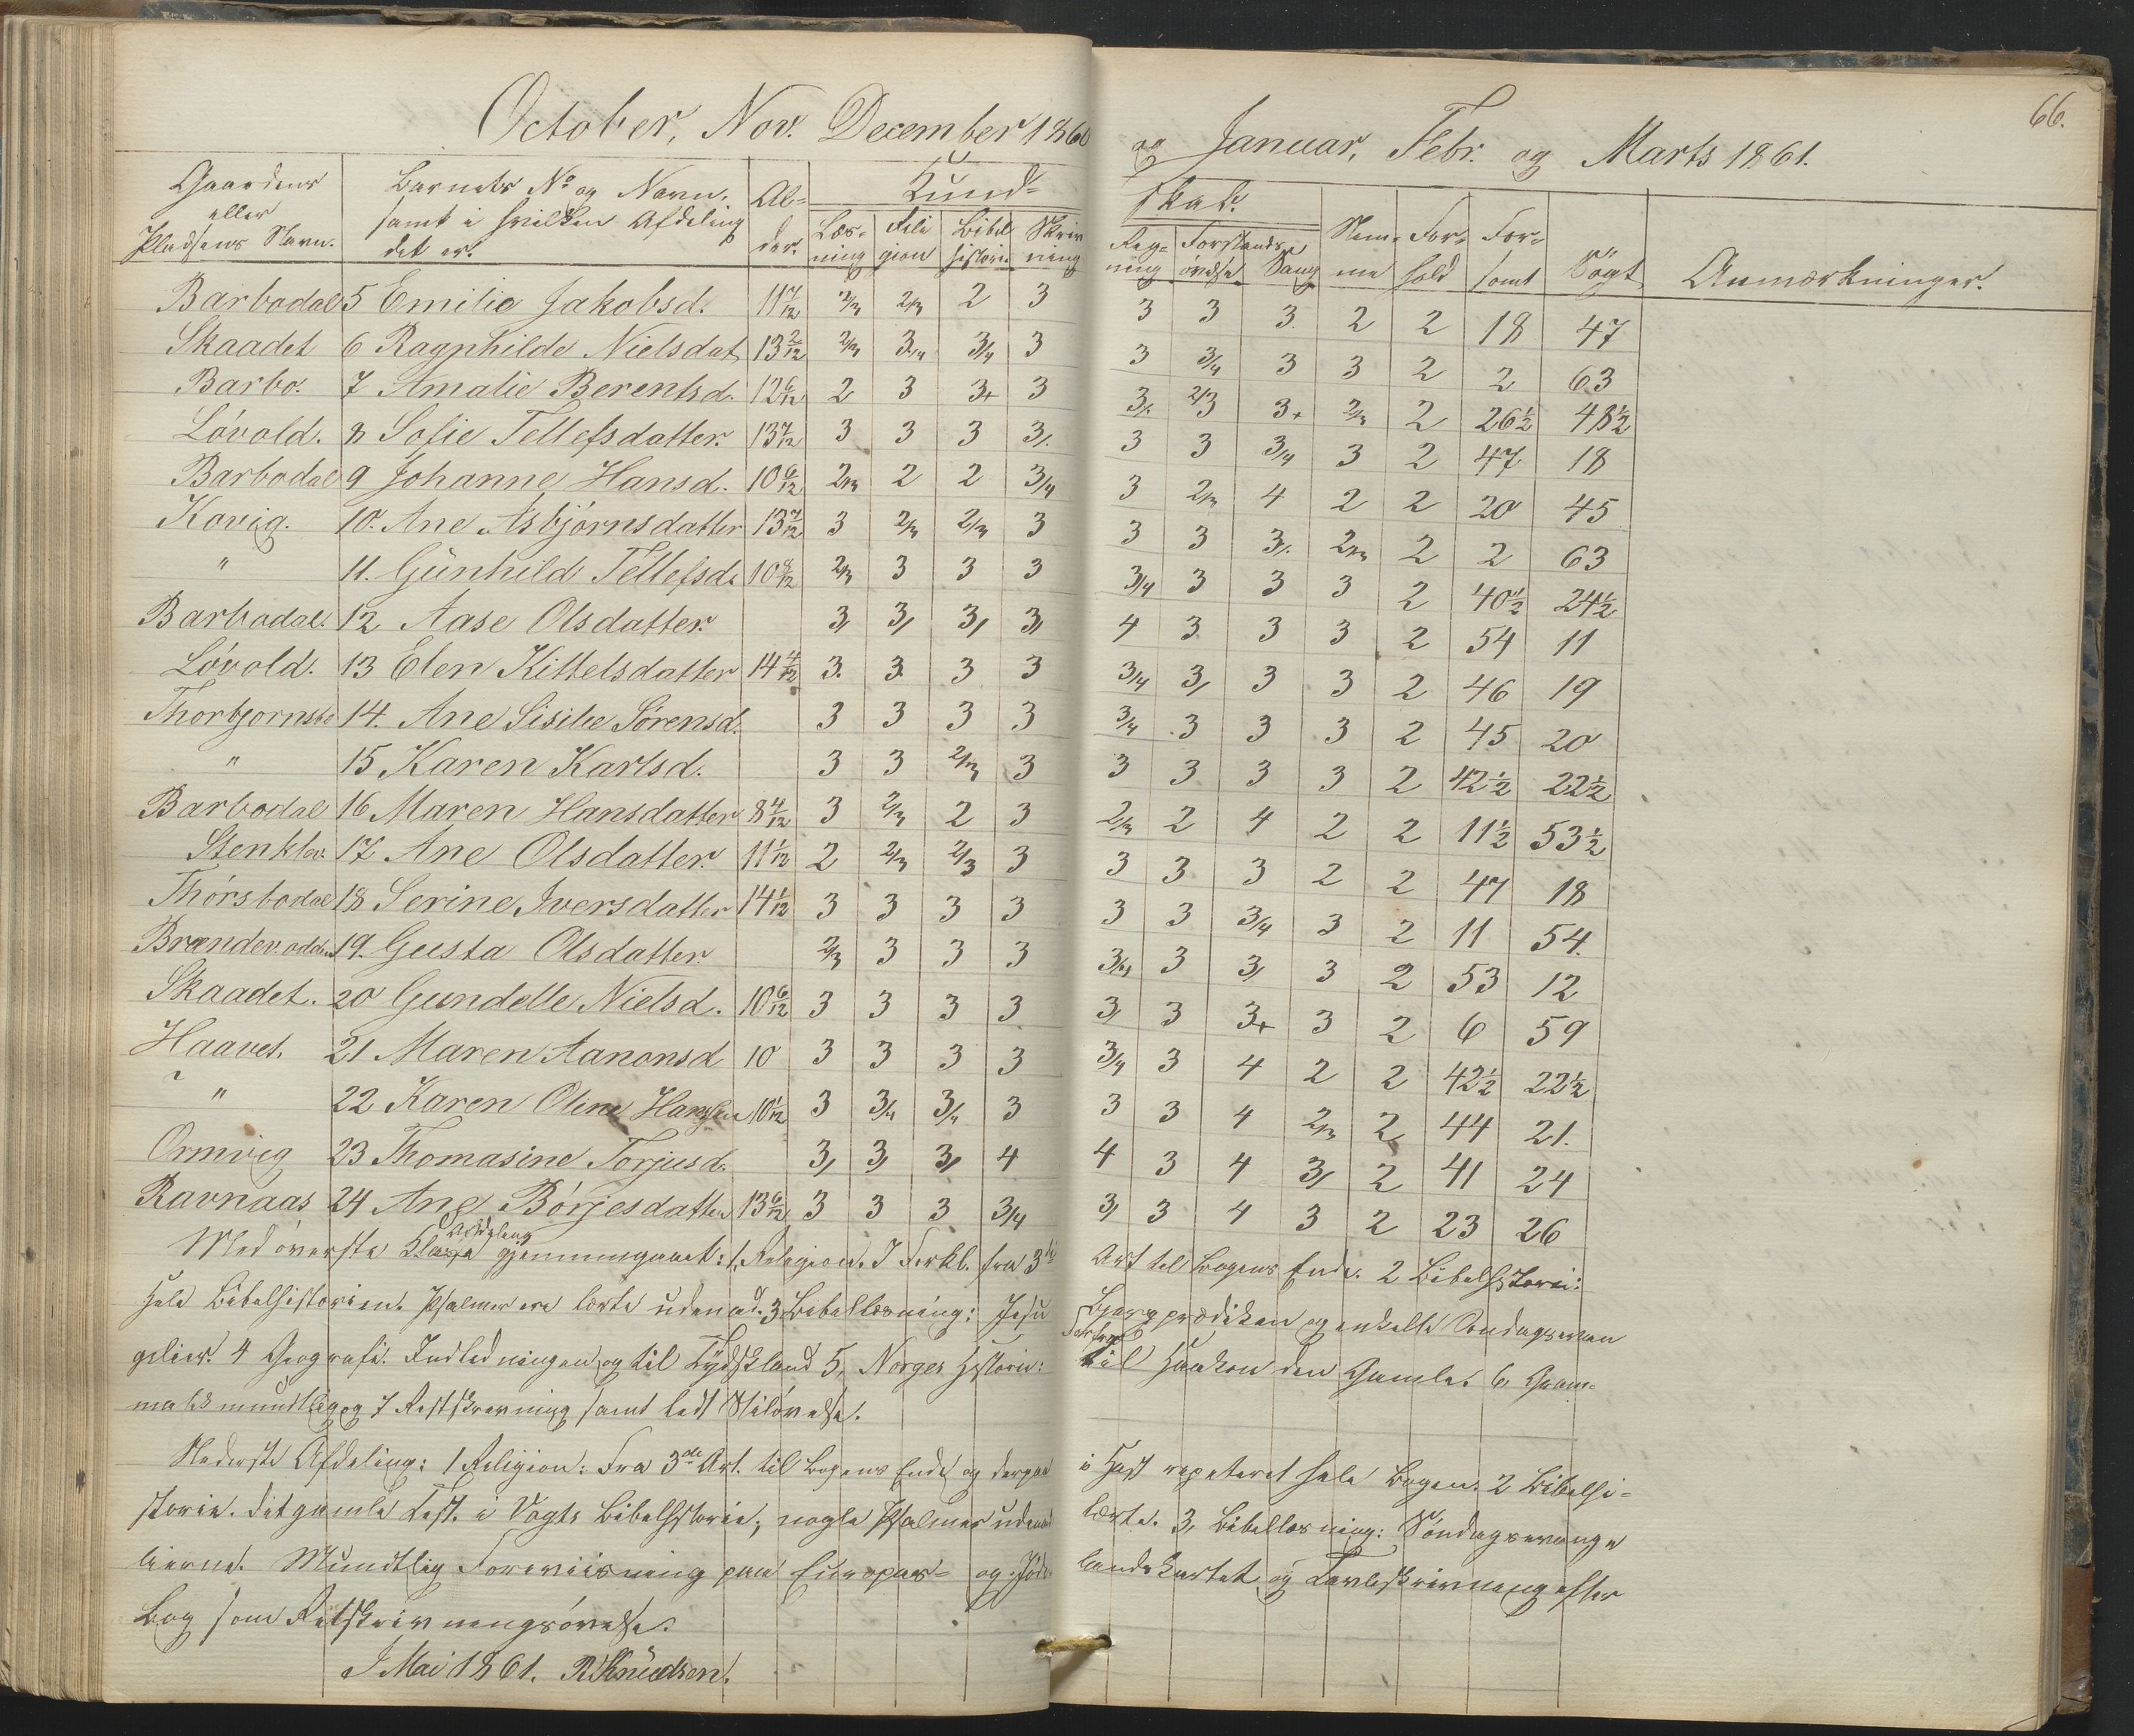 October, Nov. December 1860 og Januar, Febr. og Marts 1861.
66.
Gaardens eller Pladsens Navn. | Barnets No og Navn, samt i hvilken Afdeling det er. | Alder. | Kundskab. | Nemme | Forhold | Forsømt | Søgt | Anmærkninger.
Læsning | Religion | Bibelhistorie | Skrivning | Regning | Forstandsøvelse | Sang
Barbodal 5 Emilie Jakobsd. 11 7/12 2/3 2/3 2 3 3 3 3 2 2 18 47
Skaadet 6 Ragnhilde Nielsdat 13 2/12 2/3 3/4 3/4 3 3 3/4 3 3 2 2 63
Barbo. 7 Amalie Berentsd. 12 6/12 2 3 3+ 3 3/. 2/3 3+ 2/3 2 26½ 48½
Lóvold. 8 Sofie Tellefsdatter. 13 7/12 3 3 3 3/. 3 3 3/4 3 2 47 18
Barbodal 9 Johanne Hansd. 10 6/12 2/3 2 2 3/4 3 2/3 4 2 2 20 45
Kovig. 10. Ane Asbjórnsdatter 13 7/12 3 2/3 2/3 3 3 3 3/. 2/3 2 2 63
" 11. Gunhild Tellefsd. 10 8/12 2/3 3 3 3 3/4 3 3 3 2 40½ 24½
Barbodal. 12 Aase Olsdatter. 3/ 3/ 3/ 3/ 4 3 3 3 2 54 11
Lóvold. 13 Elen Kittelsdatter 14 4/12 3. 3. 3 3 3/4 3/ 3 3 2 46 19
Thorbjornsbo 14. Ane Sisilie Sórensd. 3 3 3 3 3/4 3 3 3 2 45 20
" 15 Karen Karlsd. 3 3 2/3 3 3 3 3 3 2 42½ 22½
Barbodal 16 Maren Hansdatter 8 4/12 3 2/3 2 3 2/3 2 4 2 2 11½ 53½
Stenklev. 17 Ane Olsdatter. 11 1/12 2 2/3 2/3 3 3 3 3 2 2 47 18
Thórsbodal 18 Serine Iversdatter 14 1/12 3 3 3 3 3 3 3/4 3 2 11 54.
Brændev.odden 19. Gusta Olsdatter. 2/3 3 3 3 3/4 3 3/ 3 2 53 12
Skaadet. 20 Gundelle Nielsd. 10 6/12 3 3 3 3 3/ 3 3+ 3 2 6 59
Haavet. 21 Maren Aanonsd 10 3 3 3 3 3/4 3 4 2 2 42½ 22½
" 22 Karen Oline Hansen 10 1/12 3 3/4 3/4 3 3 3 4 2/3 2 44 21.
Ormvig 23 Thomasine Torjusd. 3/ 3/ 3/ 4 4 3 4 3/ 2 41 24
Ravnaas 24 Ane Bórjesdatter 13 6/12 3 3 3 3/4 3/ 3 4 3 2 23 26
Med óverste Afdeling gjennemgaaet: 1, Religion. I Forkl. fra 3die Art til Bogens Ende. 2 Bibelhistorie:
hele Bibelhistorien. Psalmer ere lærte udenad. 3 Bibellæsning: Jesu Bjergprædiken og enkelte Søndagsevan
gelier. 4 Geografi. Indledningen og til Tydskland 5, Norges Historie: til Haakon den Gamle. 6, Gram-
matik mundtlig og 7 Retskrivning samt let Stilóvelse.
Nederste Afdeling: 1 Religion: Fra 3die Art. til Bogens Ende og derpaa i Høst repeteret hele Bogen. 2 Bibelhi-
storie. Det gamle Test. i Vogts Bibelhistorie; nogle Psalmer udenad lærte. 3, Bibellæsning: Søndagsevange
lierne. Mundtlig Foreviisning paa Europas- og Jóde landskartet og Tavleskrivning efter
Bog som Retskrivningsóvelse.
I Mai 1861. R. Knudsen.